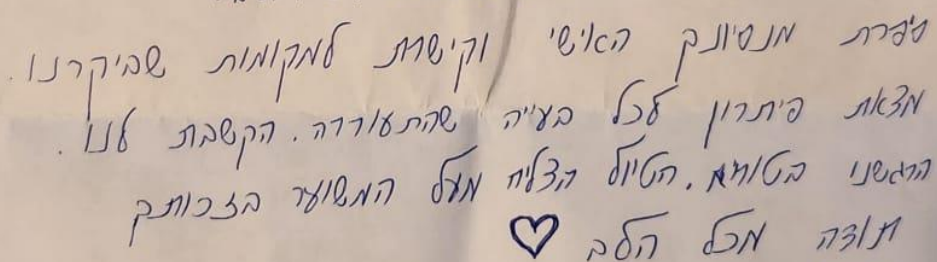 סיפרת מנסיונך האישי וקישרת למקומות שביקרנו.
מצאת פיתרון לכל בעייה שהתעוררה. הקשבת לנו.
הרגשנו בטוחים. הטיול הצליח מעל המשוער בזכותך
תודה מכל הלב ♡